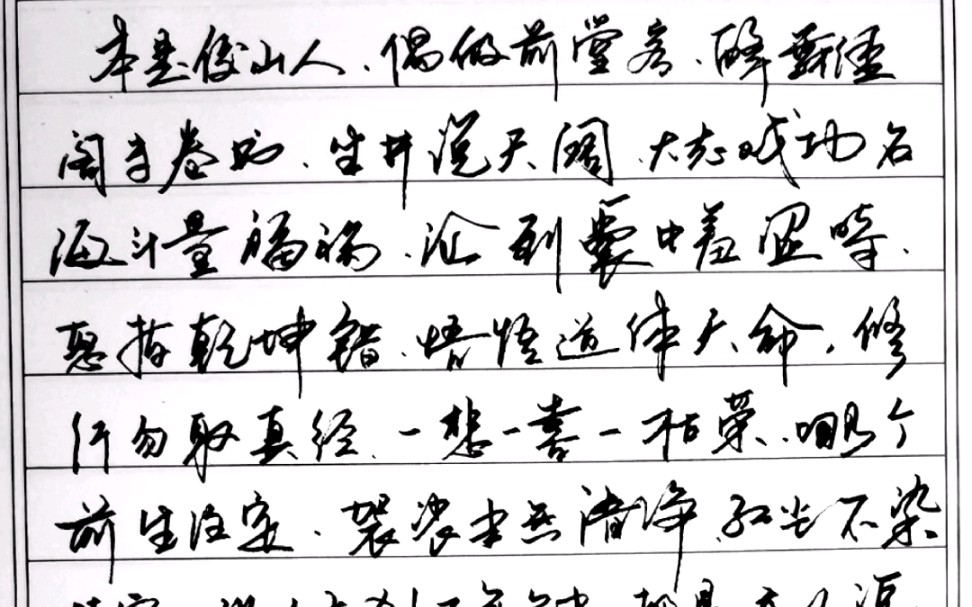 本是后山人、偶做前堂客、醉舞经
阁半卷书、坐井说天阔、大志戏功名
海斗量福祸、论到囊中羞涩时、
怒指乾坤错、悟悟道休天命、修
行勿取真经、一悲一喜一枯荣、哪个
前生注定、袈裟本无清净、红尘不染